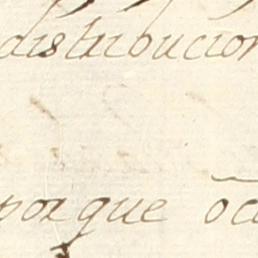 distribucion
porque